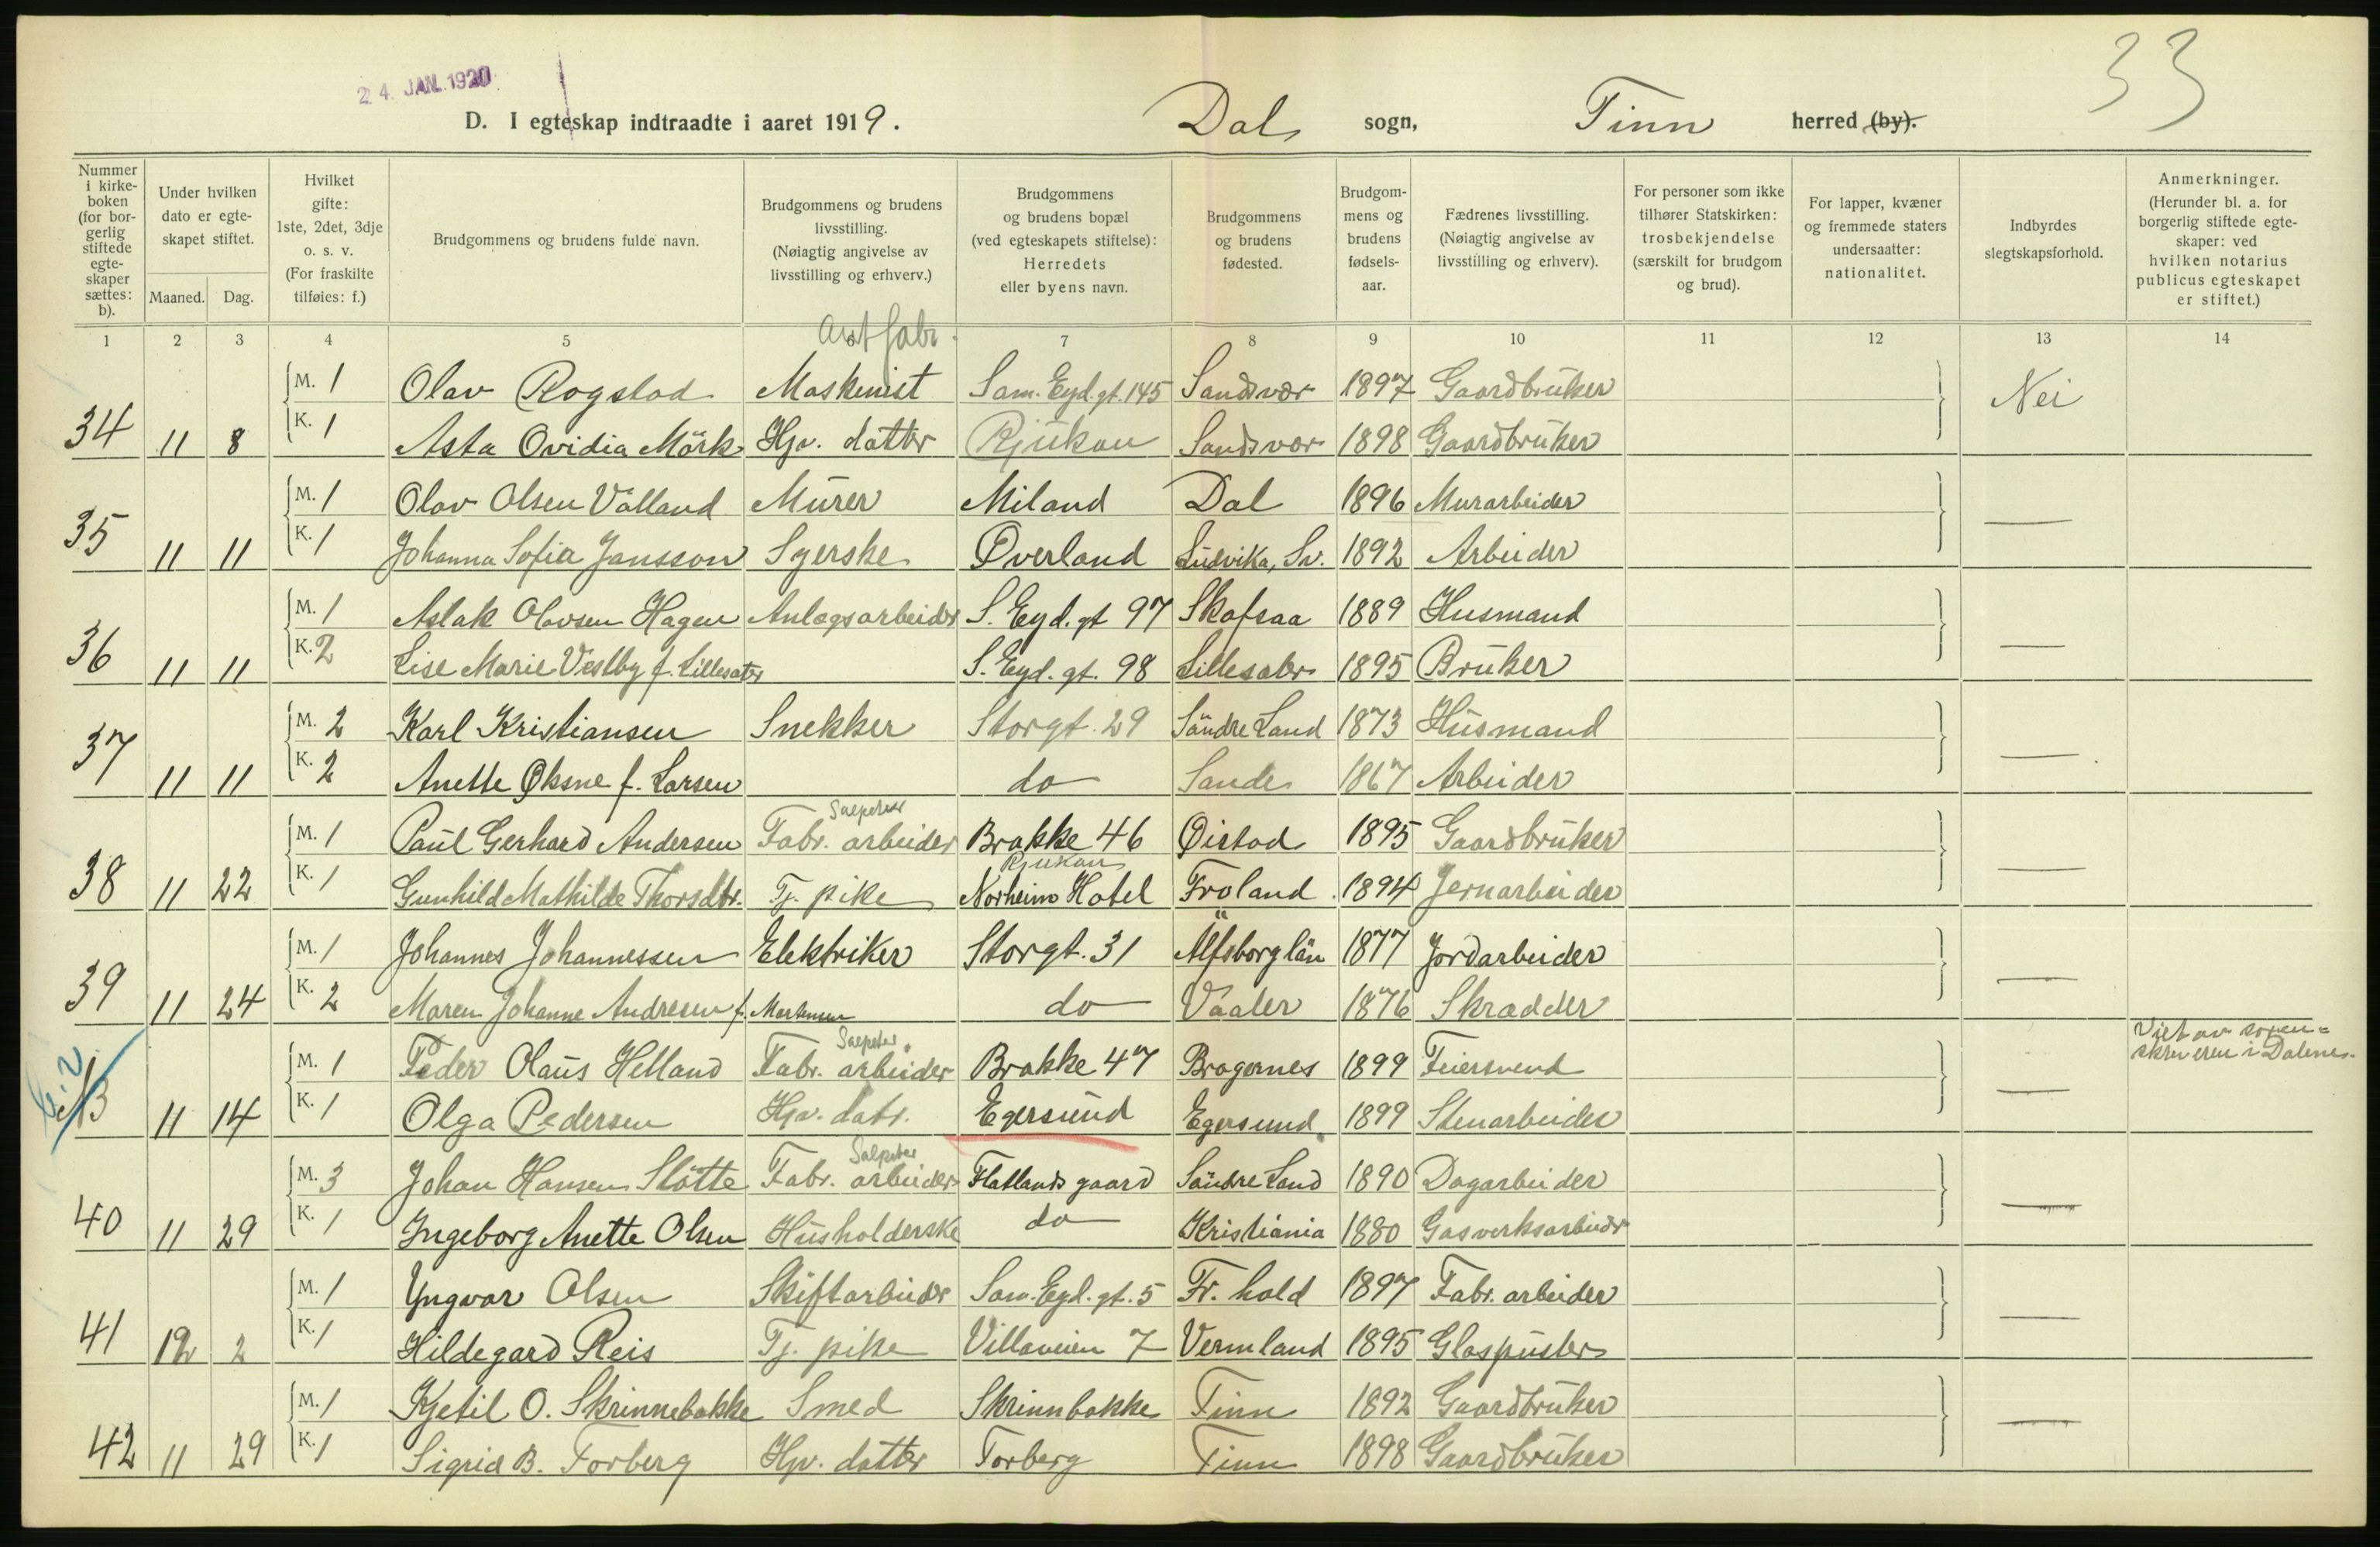 24. JAN. 1920
33
D. I egteskap indtraadte i aaret 1919. Dal sogn, Tinn herred (by).
Nummer i kirke-boken (for bor-gerlig stiftede egte-skaper sættes: b).
Under hvilken dato er egte-skapet stiftet.
Maaned. Dag.
Hvilket gifte: 1ste, 2det, 3dje o. s. v. (For fraskilte tilføies: f.)
Brudgommens og brudens fulde navn.
Brudgommens og brudens livsstilling. (Nøiagtig angivelse av livsstilling og erhverv.)
Brudgommens og brudens bopæl (ved egteskapets stiftelse): Herredets eller byens navn.
Brudgommens og brudens fødested.
Brudgom-mens og brudens fødsels-aar.
Fædrenes livsstilling. (Nøiagtig angivelse av livsstilling og erhverv).
For personer som ikke tilhører Statskirken: trosbekjendelse (særskilt for brudgom og brud).
For lapper, kvæner og fremmede staters undersaatter: nationalitet.
Indbyrdes slegtskapsforhold.
Anmerkninger. (Herunder bl. a. for borgerlig stiftede egte-skaper: ved hvilken notarius publicus egteskapet er stiftet.)
1 2 3 4 5 7 8 9 10 11 12 13 14
M. 1 Olav Rogstad Maskinist Sam. Eyd. gt. 145 Sandsvær 1897 Gaardbruker Nei
34 11 8 K. 1 Asta Ovidia Mörk Hjv. datter Rjukan Sandsvær 1898 Gaardbruker
M. 1 Olav Olsen Våtland Murer Miland Dal 1896 Murarbeider
35 11 11 K. 1 Johanna Sofia Jansson Syerske Øverland Ludvika, Sv. 1892 Arbeider —
M. 1 Aslak Olavsen Hagen Anlægsarbeider S. Eyd. gt 97 Skafsaa 1889 Husmand
36 11 11 K. 2 Lise Marie Vestby f. Lillesæter S. Eyd. gt. 98 Lillesæter 1895 Bruker —
M. 2 Karl Kristiansen Snekker Storgt. 29 Söndre Land 1873 Husmand
37 11 11 K. 2 Anette Øksne f. Larsen do Sande 1867 Arbeider —
Salpeter
M. 1 Paul Gerhard Andersen Fabr. arbeider Brakke 46 Øistad 1895 Gaardbruker
Rjukan
38 11 22 K. 1 Gunhild Mathilde Thorsdtr. Tj. pike Norheim Hotel Froland 1894 Jernarbeider —
M. 1 Johannes Johannessen Elektriker Storgt. 31 Älfsborg län 1877 Jordarbeider
39 11 24 K. 2 Maren Johanne Andresen f. do Vaaler 1876 Skrædder —
Salpeter
M. 1 Peder Olaus Helland Fabr. arbeider Brakke 47 Bragernes 1899 Feiersvend Viet av soren=
skriveren i Dalene.
11 14 K. 1 Olga Pedersen Hjv. datr. Egersund Egersund 1899 Stenarbeider —
Salpeter
M. 3 Johan Hansen Slötte Fabr. arbeider Flatlands gaard Söndre Land 1890 Dagarbeider
40 11 29 K. 1 Ingeborg Anette Olsen Husholderske do Kristiania 1880 Gasverksarbeider —
M. 1 Yngvar Olsen Skiftarbeider Sam. Eyd. gt. 5 Fr. hald 1897 Fabr. arbeider
41 12 2 K. 1 Hildegard Reis Tj. pike Villaveien 7 Vermland 1895 Glaspuster —
M. 1 Kjetil O. Skrinnebakke Smed Skrinnbakke Tinn 1892 Gaardbruker
42 11 29 K. 1 Sigrid B. Torberg Hjv. datter Torberg Tinn 1898 Gaardbruker —